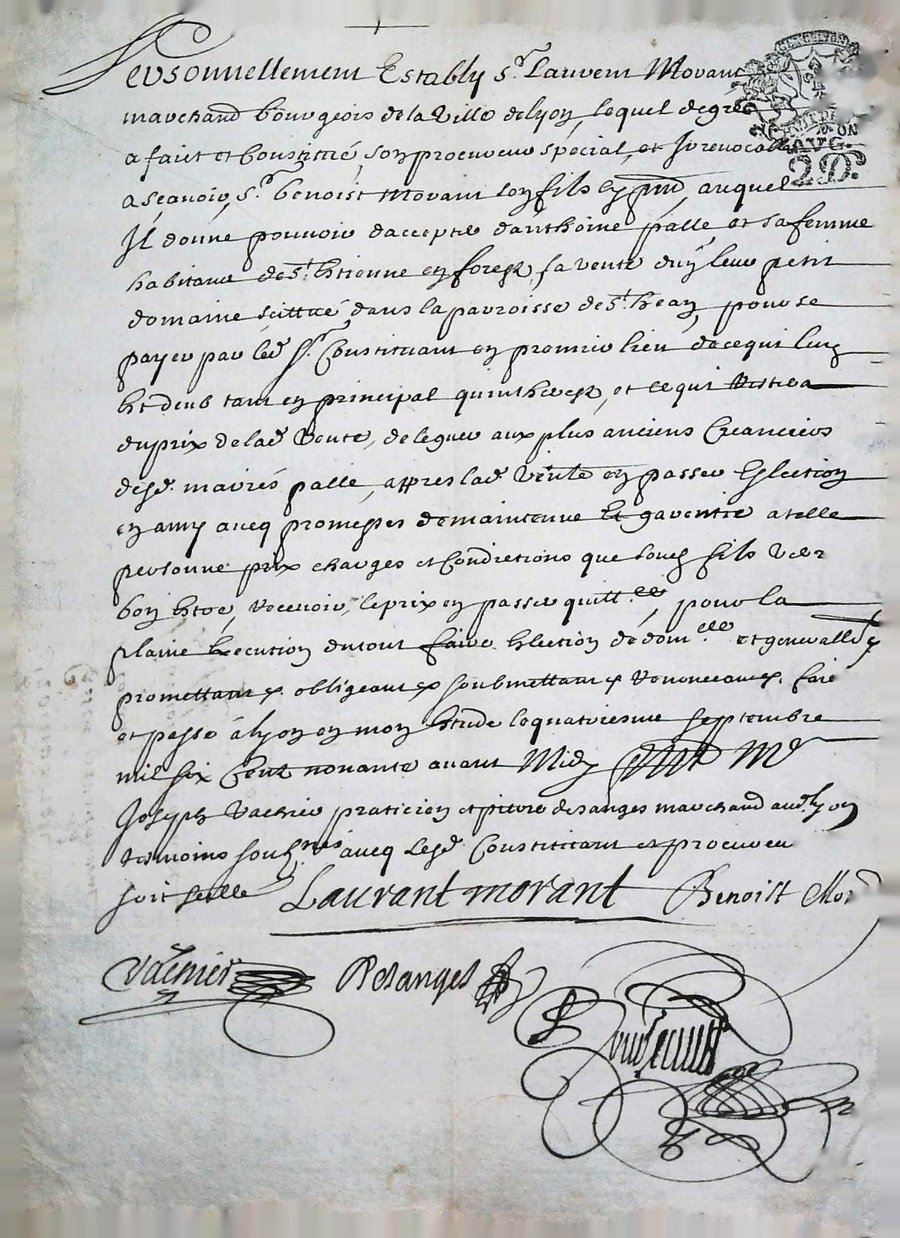 Personnellement Estably Sr. Laurent Morant
marchand bourgeois de la Ville de Lyon, lequel de gré
a fait et Constitué, son procureur special, et Irrevocable
a sçavoir, Sr. benoist Morant son fils auquel
Il donne pouvoir daccepter danthoine palle et sa femme
habitans de St. Etienne en forest, la vente duy leur petit
domaine scittué, dans la parroisse de St. hean, pour se
payer par led. Sr. Constituant en premier lieu de ce qui luy
Est deub tant en principal qu'intherest, et ce qui Restera
du prix de lad. Vente, deleguer aux plus anciens Creanciers
desd. mariés palle, appres lad. Vente en passer Eslection
en amy avecq promesses de maintenue Et garentie a telle
personne prix charges et Condictions que sond. fils
bon Estre, recevoir, le prix en passer quitt.ce, pour la
plaine Execution du tout faire Election de dom.lle et generallt
promettant &. obligeant &. soubmettant &. Renonceant &. faict
et passé à Lyon en mon Estude le quatriesme septembre
mil six Cent nonante avant Midy
Joseph Vachier praticien et pierre desanges marchand aud. Lyon
temoins avecq lesd. Constituant et procureur
soit scellé Laurant morant Benoist Mor
Vachier Desanges
GEN DE LYON
2 D.